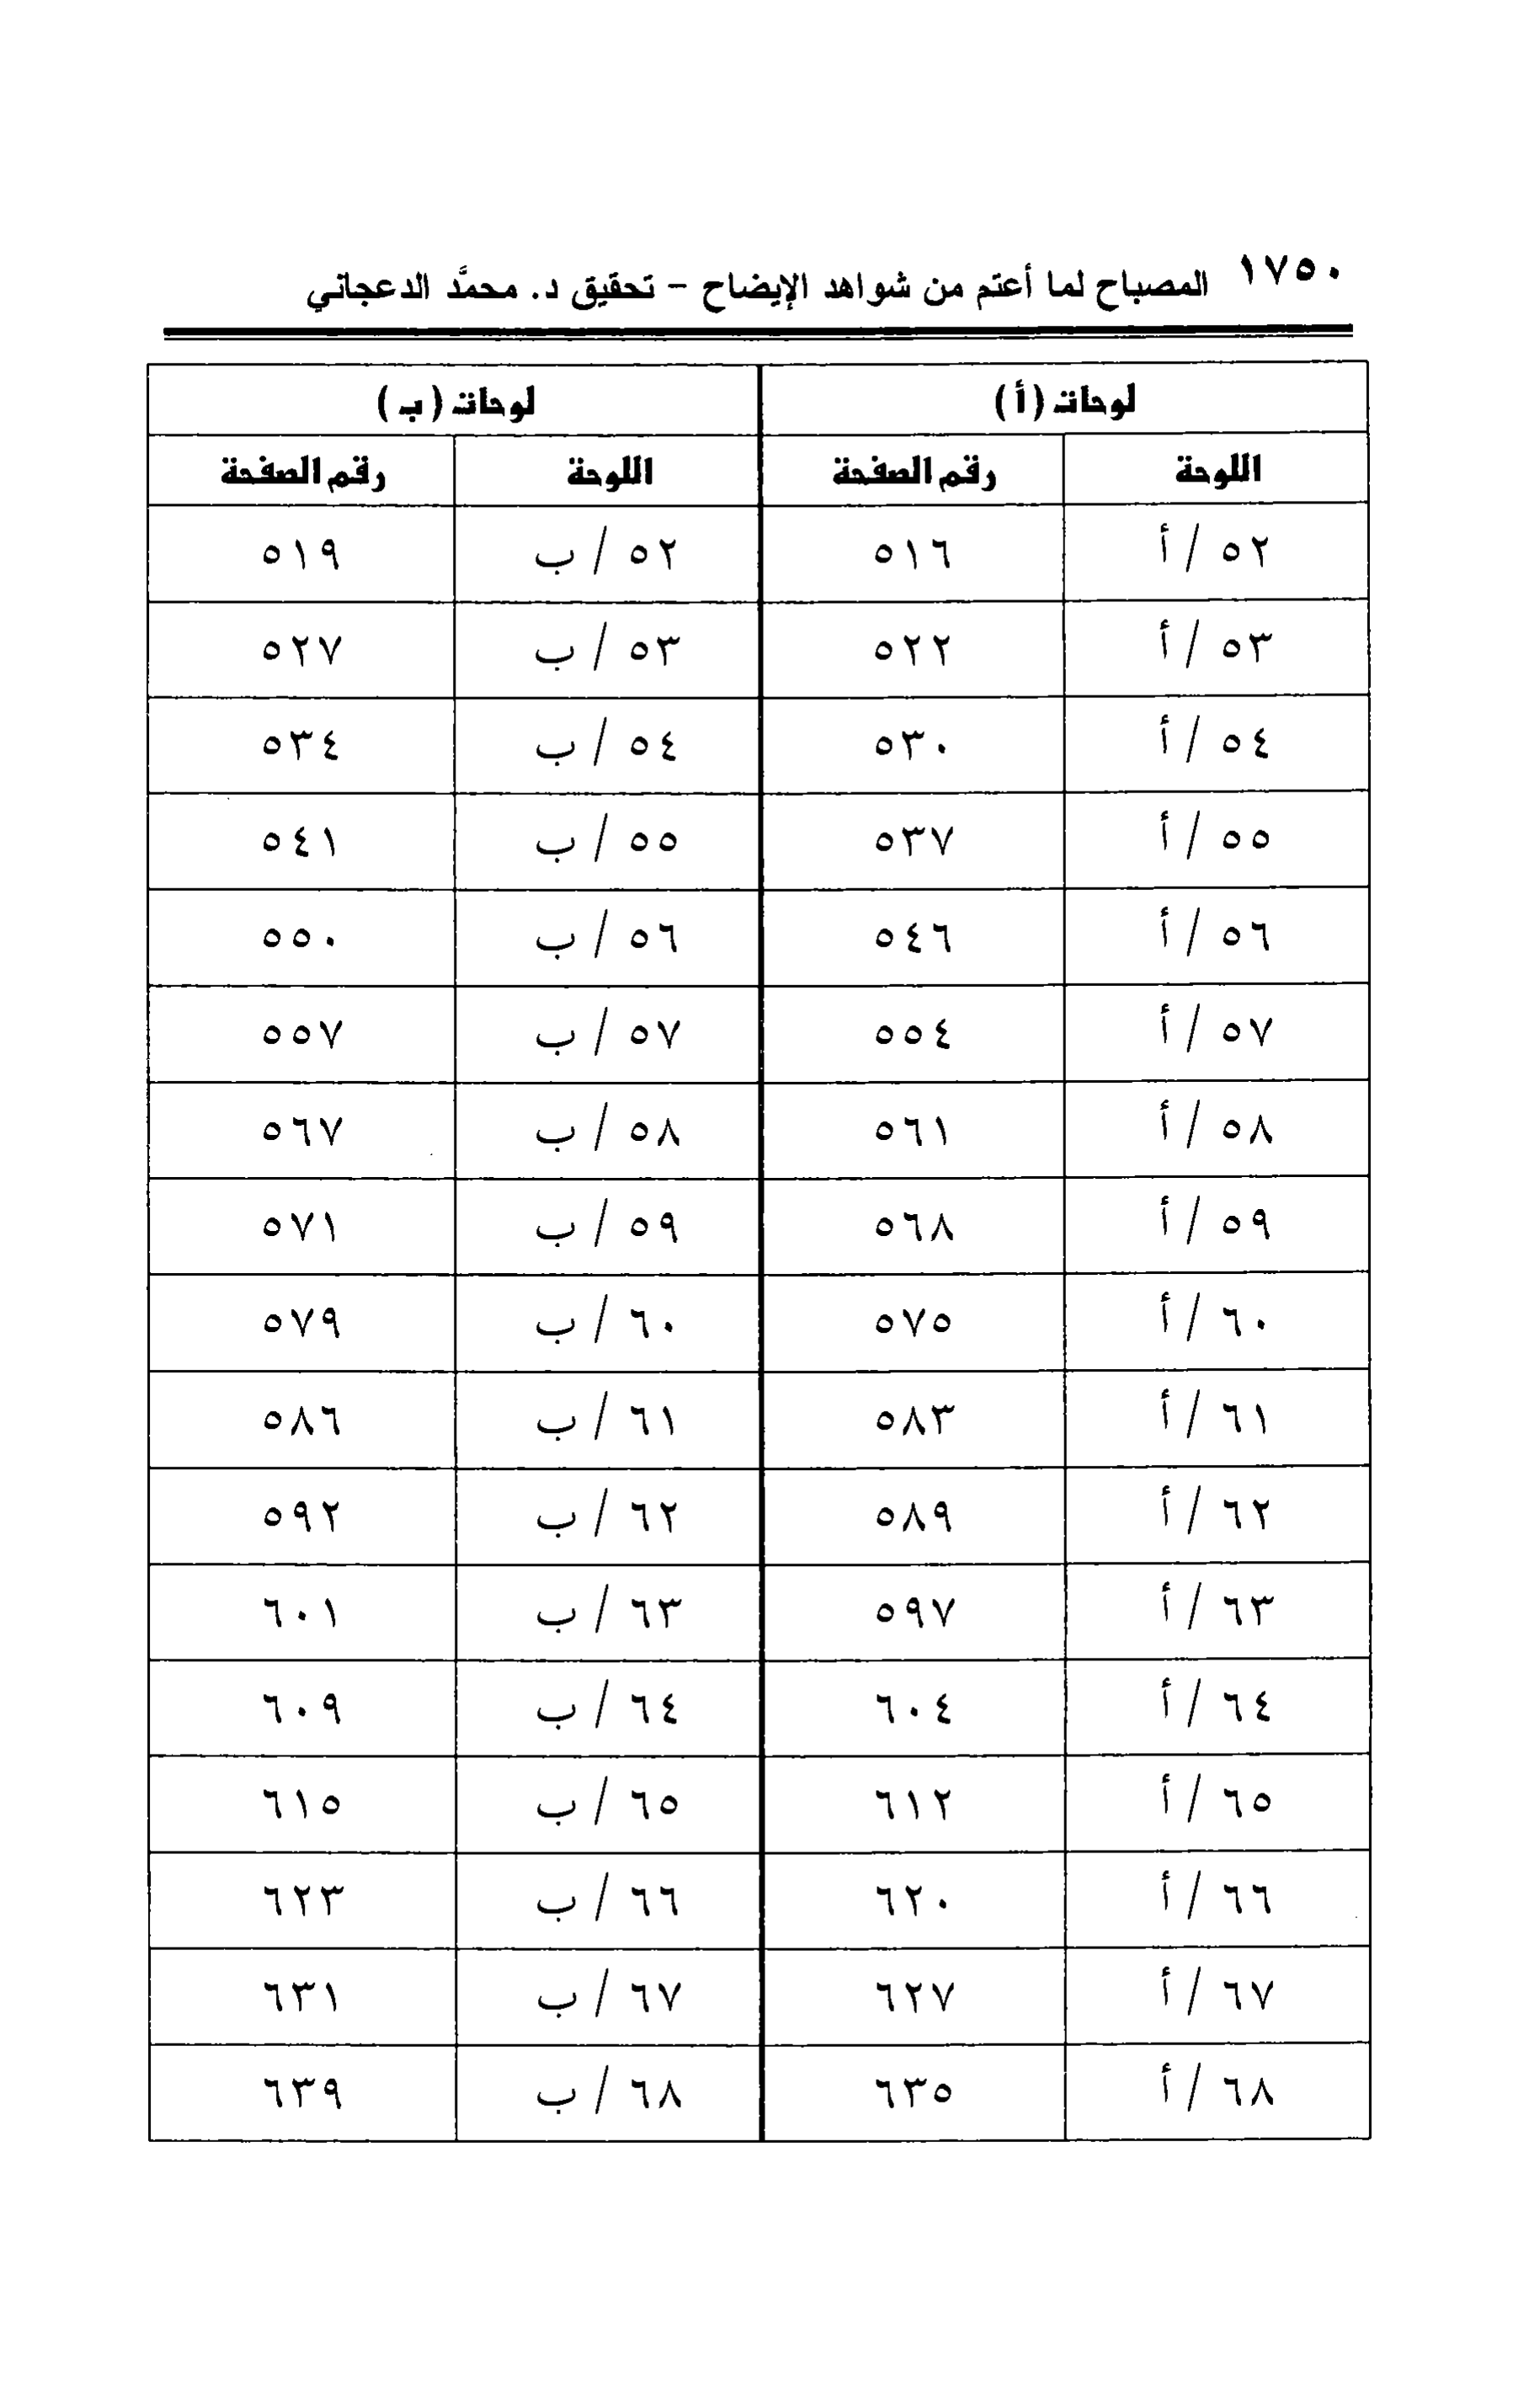 ١٧٥٠ المصباح لما أعتم من شواهد الإيضاح - تحقيق د. محمَّد الدعجاني
لوحات (أ) لوحات (ب)
اللوحة رقم الصفحة اللوحة رقم الصفحة
٥٢ / أ ٥١٦ ٥٢ / ب ٥١٩
٥٣ / أ ٥٢٢ ٥٣ / ب ٥٢٧
٥٤ / أ ٥٣٠ ٥٤ / ب ٥٣٤
٥٥ / أ ٥٣٧ ٥٥ / ب ٥٤١
٥٦ / أ ٥٤٦ ٥٦ / ب ٥٥٠
٥٧ / أ ٥٥٤ ٥٧ / ب ٥٥٧
٥٨ / أ ٥٦١ ٥٨ / ب ٥٦٧
٥٩ / أ ٥٦٨ ٥٩ / ب ٥٧١
٦٠ / أ ٥٧٥ ٦٠ / ب ٥٧٩
٦١ / أ ٥٨٣ ٦١ / ب ٥٨٦
٦٢ / أ ٥٨٩ ٦٢ / ب ٥٩٢
٦٣ / أ ٥٩٧ ٦٣ / ب ٦٠١
٦٤ / أ ٦٠٤ ٦٤ / ب ٦٠٩
٦٥ / أ ٦١٢ ٦٥ / ب ٦١٥
٦٦ / أ ٦٢٠ ٦٦ / ب ٦٢٣
٦٧ / أ ٦٢٧ ٦٧ / ب ٦٣١
٦٨ / أ ٦٣٥ ٦٨ / ب ٦٣٩